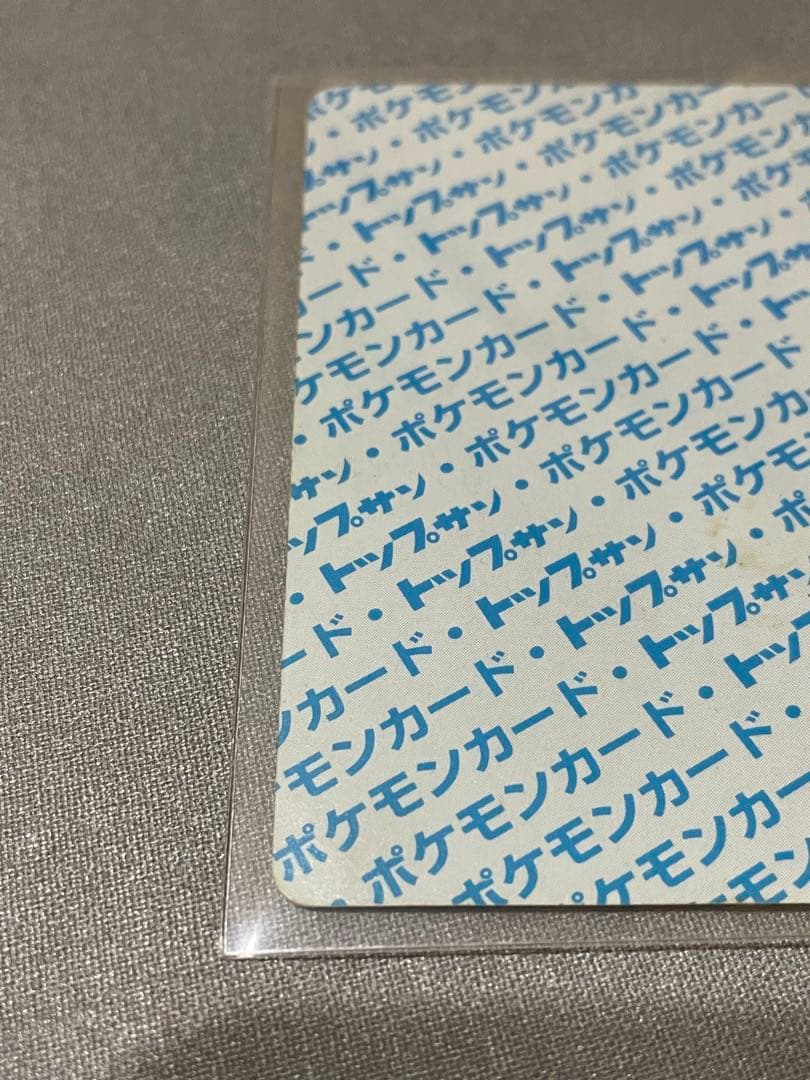 ポケモンカ
・ポケモンカード
・ポケモンカード・
サン・ポケモンカード・
トップサン・ポケモンカ
・トップサン・ポケモン
ード・トップサン・ポケモ
ンカード・トップサン・
ケモンカード・トップサン
・ポケモンカード・トップサ
サン・ポケモンカード・ト
トップサン・ポケモンカード
・トップサン・ポケモンカー
ード・トップサン・ポケモン
カード・トップサン・ポ
モンカード・トップサン
ポケモンカード・トッ
・ポケモンカード・
ポケモンカー
ポケモン